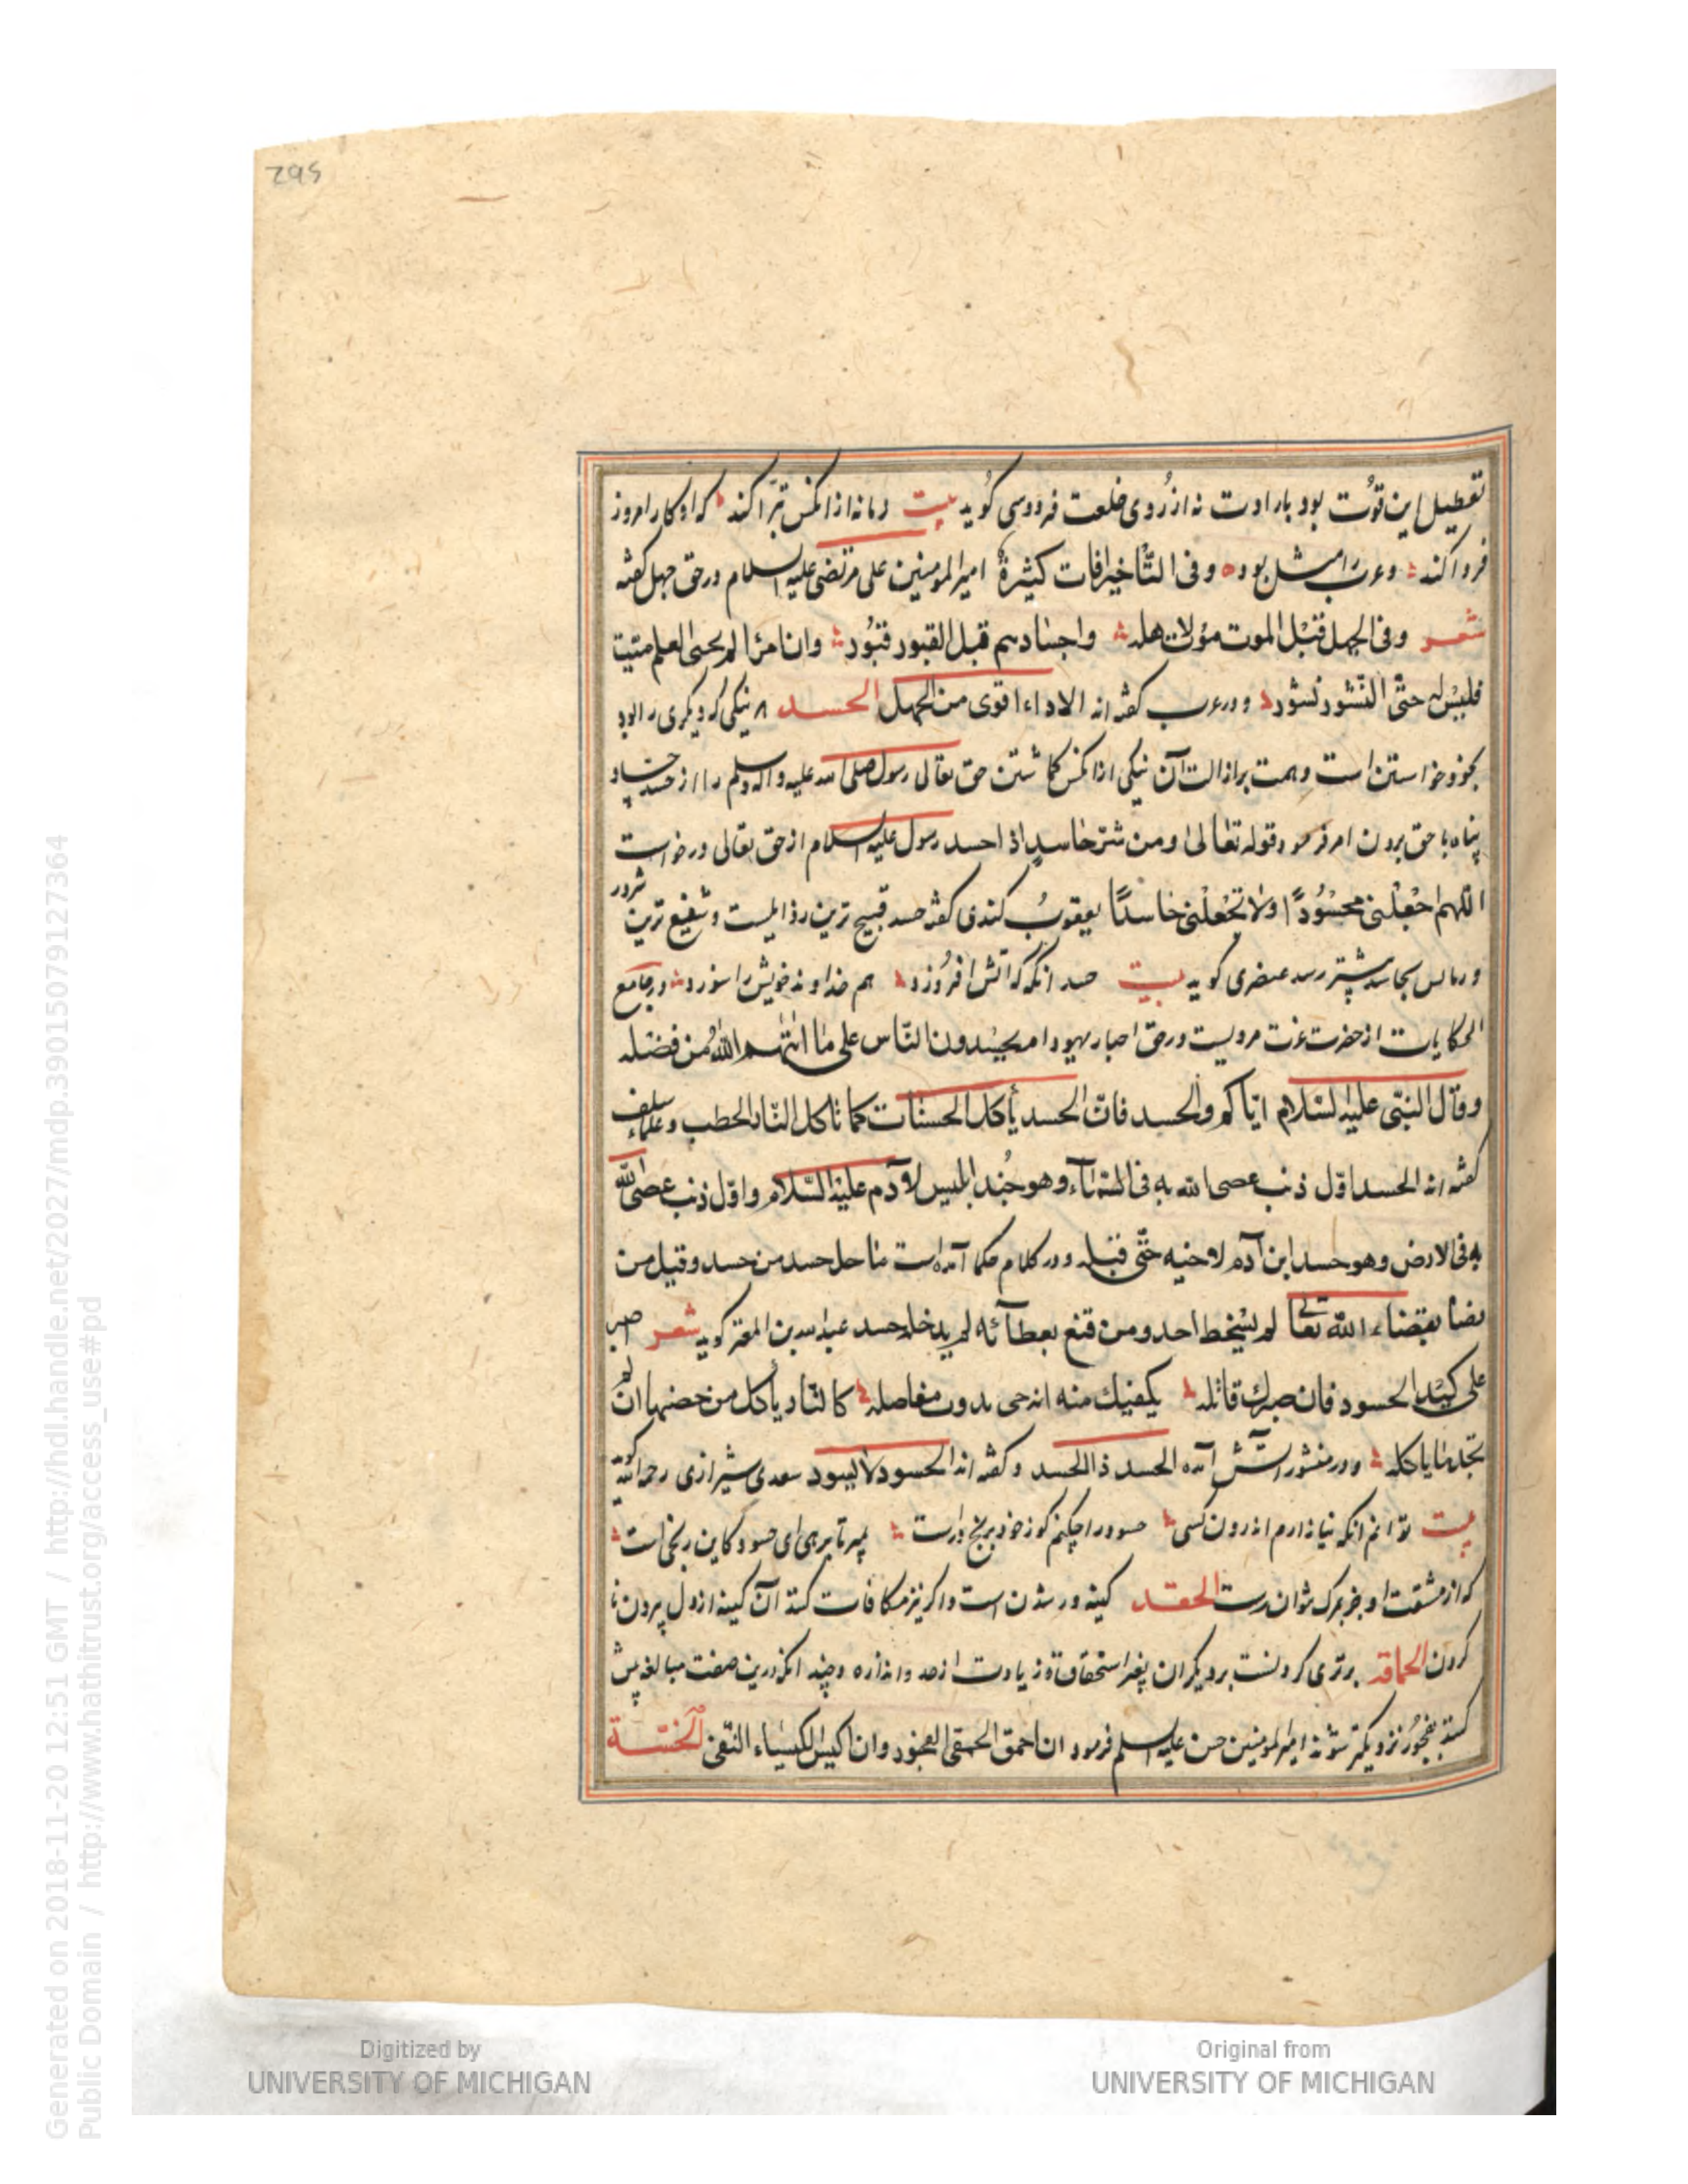 562
تعطیل این قوت بود بارادت نه از روی خلعت فردوسی کوید بیت زمانه از آنکس تبرا کند که او کار امروز
فردا کند و عرب را مثل بود وفی التّاخیر افات کثیرة امیر المومنین علی مرتضی علیه السلام در حق جهل کفته
شعر وفی الجهل قبل الموت موت لاهله واجسادهم قبل القبور قبور وان امرئا لم یحیی العلم میّت
فلیس له حتّی النّشور نشور و در عرب کفته اند الا داء اقوی من الجهل الحسد نیکی که دیکری را بود
بخود خواستن است وهمت بر ازالت آن نیکی از آنکس کماشتن حق تعالی رسول صلی الله علیه واله وسلم را از حسد حساد
پناه با حق بردن امر فرمود قوله تعالی ومن شرّ حاسد اذا حسد رسول علیه السلام از حق تعالی درخواست
اللهم اجعلنی محسودًا ولا تجعلنی حاسدًا یعقوب کندی کفته حسد قبیح ترین رذایلست و شنیع ترین شرور
بحاسد بیشتر رسد عنصری کوید بیت حسد آنکه که آتش افروزد هم خداوند خویش را سوزد در جامع
الحکایات از حضرت عزت مرویست در حق احبار یهود ام یحسدون النّاس علی ما اتیهم الله من فضله
وقال النبّی علیه السّلام ایّاکم والحسد فانّ الحسد یأکل الحسنات کما تاکل النّار الحطب و علماء سلف
کفته اند الحسد اوّل ذنب عصی الله به فی السّماء وهو حسد ابلیس لآدم علیه السّلام واوّل ذنب عصی الله
به فی الارض وهو حسد ابن آدم لاخیه حتّی قتله و در کلام حکما آمده است ما حل حسد من حسد وقیل من
رضا بقضاء الله تعالی لم یسخط احد ومن قنع بعطائه لم یدخله حسد عبد الله بن المعتز کوید شعر اصبر
علی کید الحسود فان صبرک قاتله یکفیک منه انه حی بدون مفاصله کالنّار یأکل من حضنها ان لم
تجد ما یاکله و در منثور آتش آمده الحسد ذا الجسد و کفته اند الحسود لا یسود سعدی شیرازی رحمه الله کوید
بیت توانم آنکه نیازارم اندرون کسی حسود را چکنم کو ز خود برنج درست بمیر تا برهی ای حسود کاین رنجی است
که از مشقت او جز بمرک نتوان رست الحقد کینه ور شدن است و اکر نیز مکافات کند آن کینه از دل بیرون نا
کردن الحماقة برتری کردنست بر دیکران بغیر استحقاق و زیادت از حد و اندازه و چند آنکه درین صفت مبالغه بیش
کنند بفجور نزدیکتر شوند امیر المومنین حسن علیه السلم فرمود ان احمق الحمقی الفجور وان اکیس الکیساء التقی الخسّة
Digitized by
UNIVERSITY OF MICHIGAN
Original from
UNIVERSITY OF MICHIGAN
Generated on 2018-11-20 12:51 GMT / http://hdl.handle.net/2027/mdp.39015079127364
Public Domain / http://www.hathitrust.org/access_use#pd